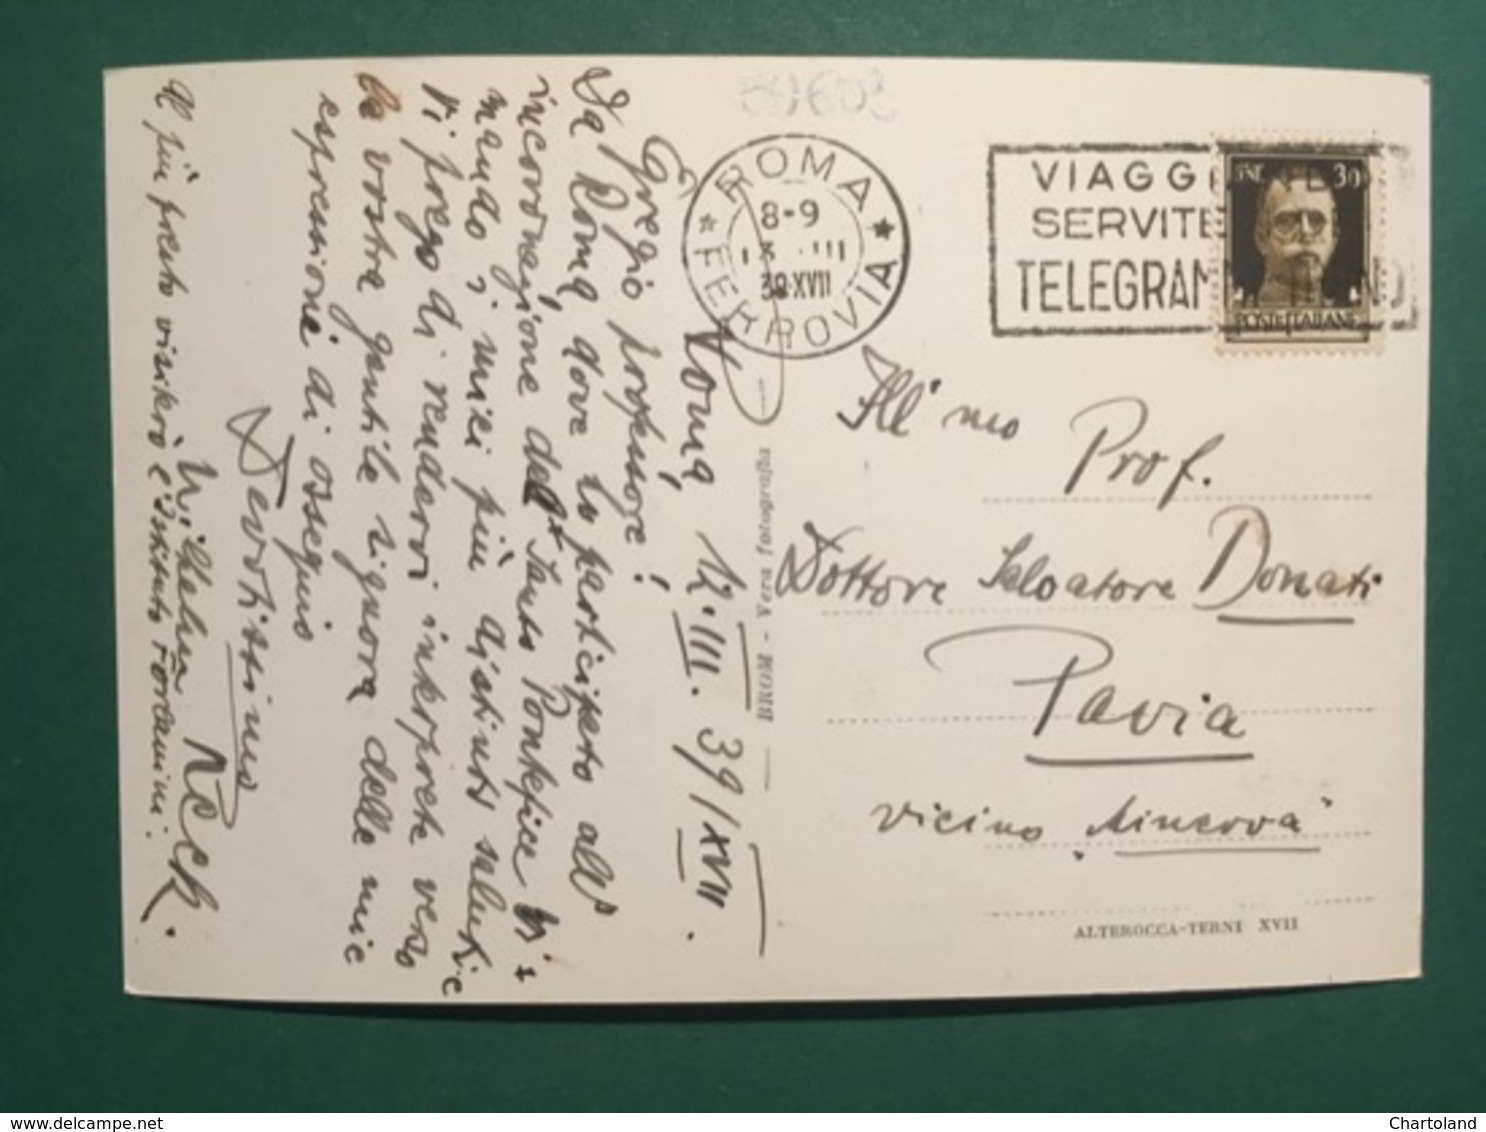 Roma, 12. III. 39/XVII.
Egregio professore!
Da Roma, dove io partecipato all'
incoronazione del Santo Pontefice Vi
mando i miei più distinti saluti e
Vi prego di rendervi interprete verso
la vostra gentile signora delle mie
espressioni di ossequio
Devotissimo
Wilhelm
Il più presto visiterò l'Istituto Forlanini.
ROMA
FERROVIA
8-9
13 III
39·XVII
VIAGG
SERVITE
TELEGRAM
30
POSTE ITALIANE
Ill'mo
Prof.
Dottore Salvatore Donati
Pavia
vicino "Minerva"
BROM - Vera fotografia
ALTEROCCA-TERNI XVII
Chartoland
www.delcampe.net